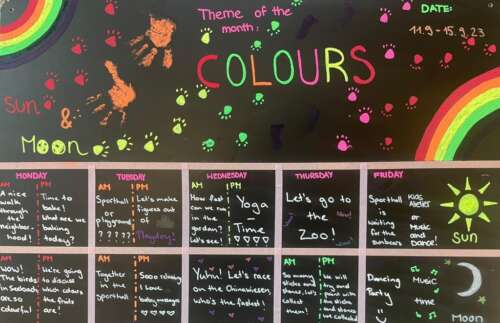 Theme of the
month:
DATE:
11.9 - 15.9.23
COLOURS
Sun
&
Moon
MONDAY
TUESDAY
WEDNESDAY
THURSDAY
FRIDAY
AM PM
A nice
walk
through
the
neighbor-
hood!
Time to
bake!
What are we
baking
today?
AM PM
Sporthall
or
playground
?????
Let's make
figures out
of
AM PM
How fast
can we run
in the
garden?
Let's see!
Yoga
-
Time
Let's go to
the
Zoo!
Sporthall
is
waiting
for the
sunbears
or
Music
and
DANCE!
Sun
AM PM
WOW!
The birds
in Seebach
are so
colourful
We're going
to discuss
which colors
the fruits
are!
AM PM
Together
in the
Sporthall
Sooo relaxing
I love
Yuhu! Let's race
on the Chinawiesen,
who's the fastest!
AM PM
So many
sticks and
stones, let's
collect
them!
We will
try and
paint with
the sticks
and stones
we collected
Dancing
Party
MUSIC
time
Moon